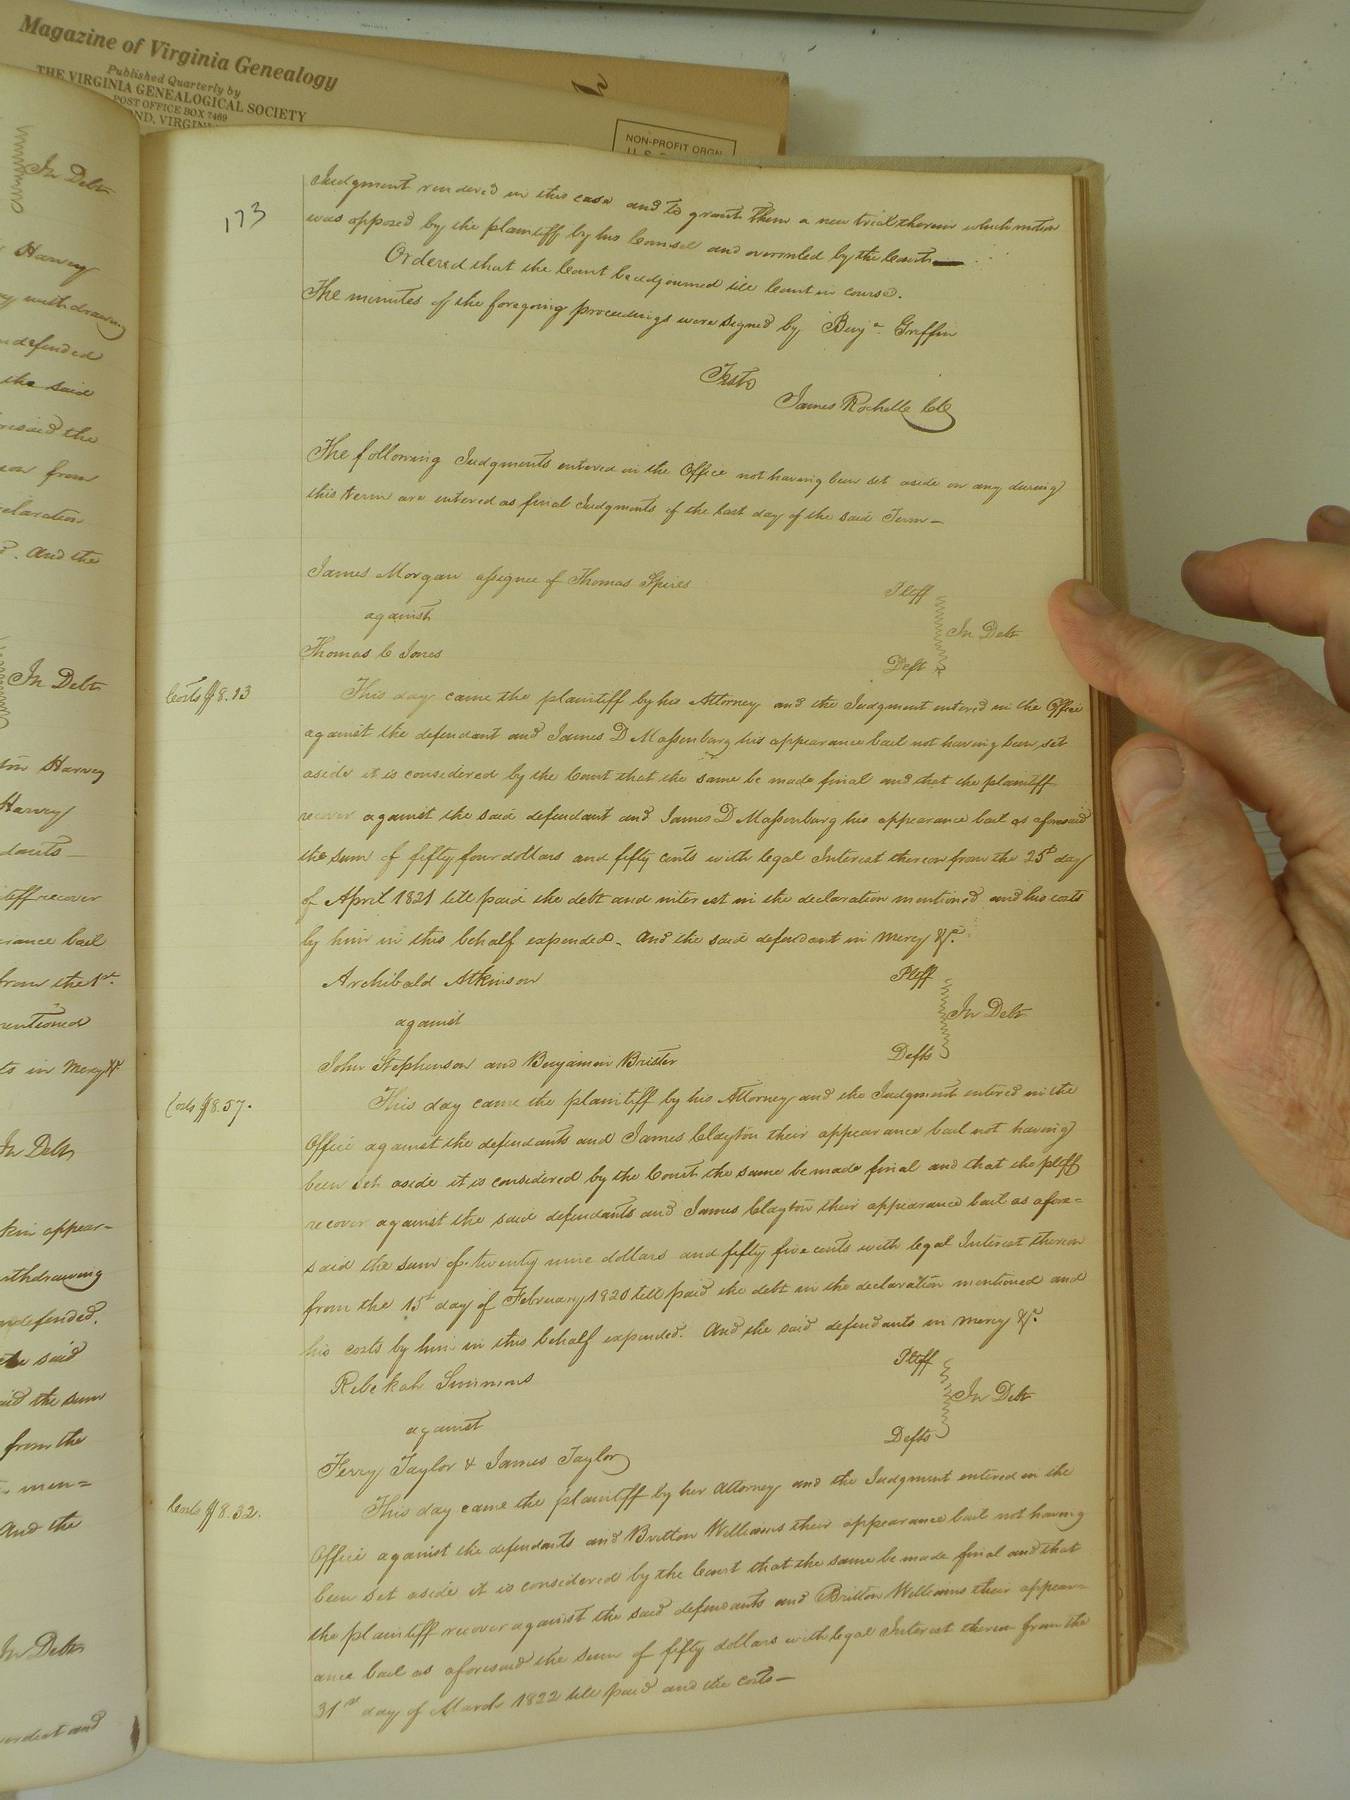 Magazine of Virginia Genealogy
Published Quarterly by
THE VIRGINIA GENEALOGICAL SOCIETY
POST OFFICE BOX 7469
OND, VIRGIN
NON-PROFIT ORGN
173
In Debt
Harvey
withdrawing
defended
the said
the
from
claration
And the
In Debt
Harvey
Harvey
recover
bail
from the 1st
mentioned
in Mercy &c
In Debt
kin appear-
withdrawing
defended.
the said
said the sum
from the
men=
And the
In Debt
and
Judgment rendered in this case and to grant them a new trial therein which motion
was opposed by the plaintiff by his Counsel and overruled by the Court
Ordered that the Court be adjourned till Court in course.
The minutes of the foregoing proceedings were signed by Benja Griffin
Teste
James Rochelle Clk
The following Judgments entered in the Office not having been set aside on any during
this term are entered as final Judgments of the last day of the said Term-
James Morgan assignee of Thomas Spires Pltff
against In Debt
Thomas C Jones Deft
Costs $8.13
This day came the plaintiff by his Attorney and the Judgment entered in the Office
against the defendant and James D Massenburg his appearance bail not having been set
aside it is considered by the Court that the same be made final and that the plaintiff
recover against the said defendant and James D Massenburg his appearance bail as aforesaid
the sum of fifty four dollars and fifty cents with legal Interest thereon from the 25th day
of April 1821 till paid the debt and interest in the declaration mentioned and his costs
by him in this behalf expended. And the said defendant in Mercy &c.
Archibald Atkinson Pltff
against In Debt
John Stephenson and Benjamin Brister Defts
Costs $8.57.
This day came the plaintiff by his Attorney and the Judgment entered in the
Office against the defendants and James Clayton their appearance bail not having
been set aside it is considered by the Court the same be made final and that the pltff
recover against the said defendants and James Clayton their appearance bail as afore=
said the sum of twenty nine dollars and fifty five cents with legal Interest thereon
from the 15th day of February 1820 till paid the debt in the declaration mentioned and
his costs by him in this behalf expended. And the said defendants in mercy &c.
Rebekah Simmons Pltff
against In Debt
Ferry Taylor & James Taylor Defts
Costs $8.32.
This day came the plaintiff by her Attorney and the Judgment entered in the
Office against the defendants and Britton Williams their appearance bail not having
been set aside it is considered by the Court that the same be made final and that
the plaintiff recover against the said defendants and Britton Williams their appear=
ance bail as aforesaid the sum of fifty dollars with legal Interest thereon from the
31st day of March 1822 till paid and the costs-